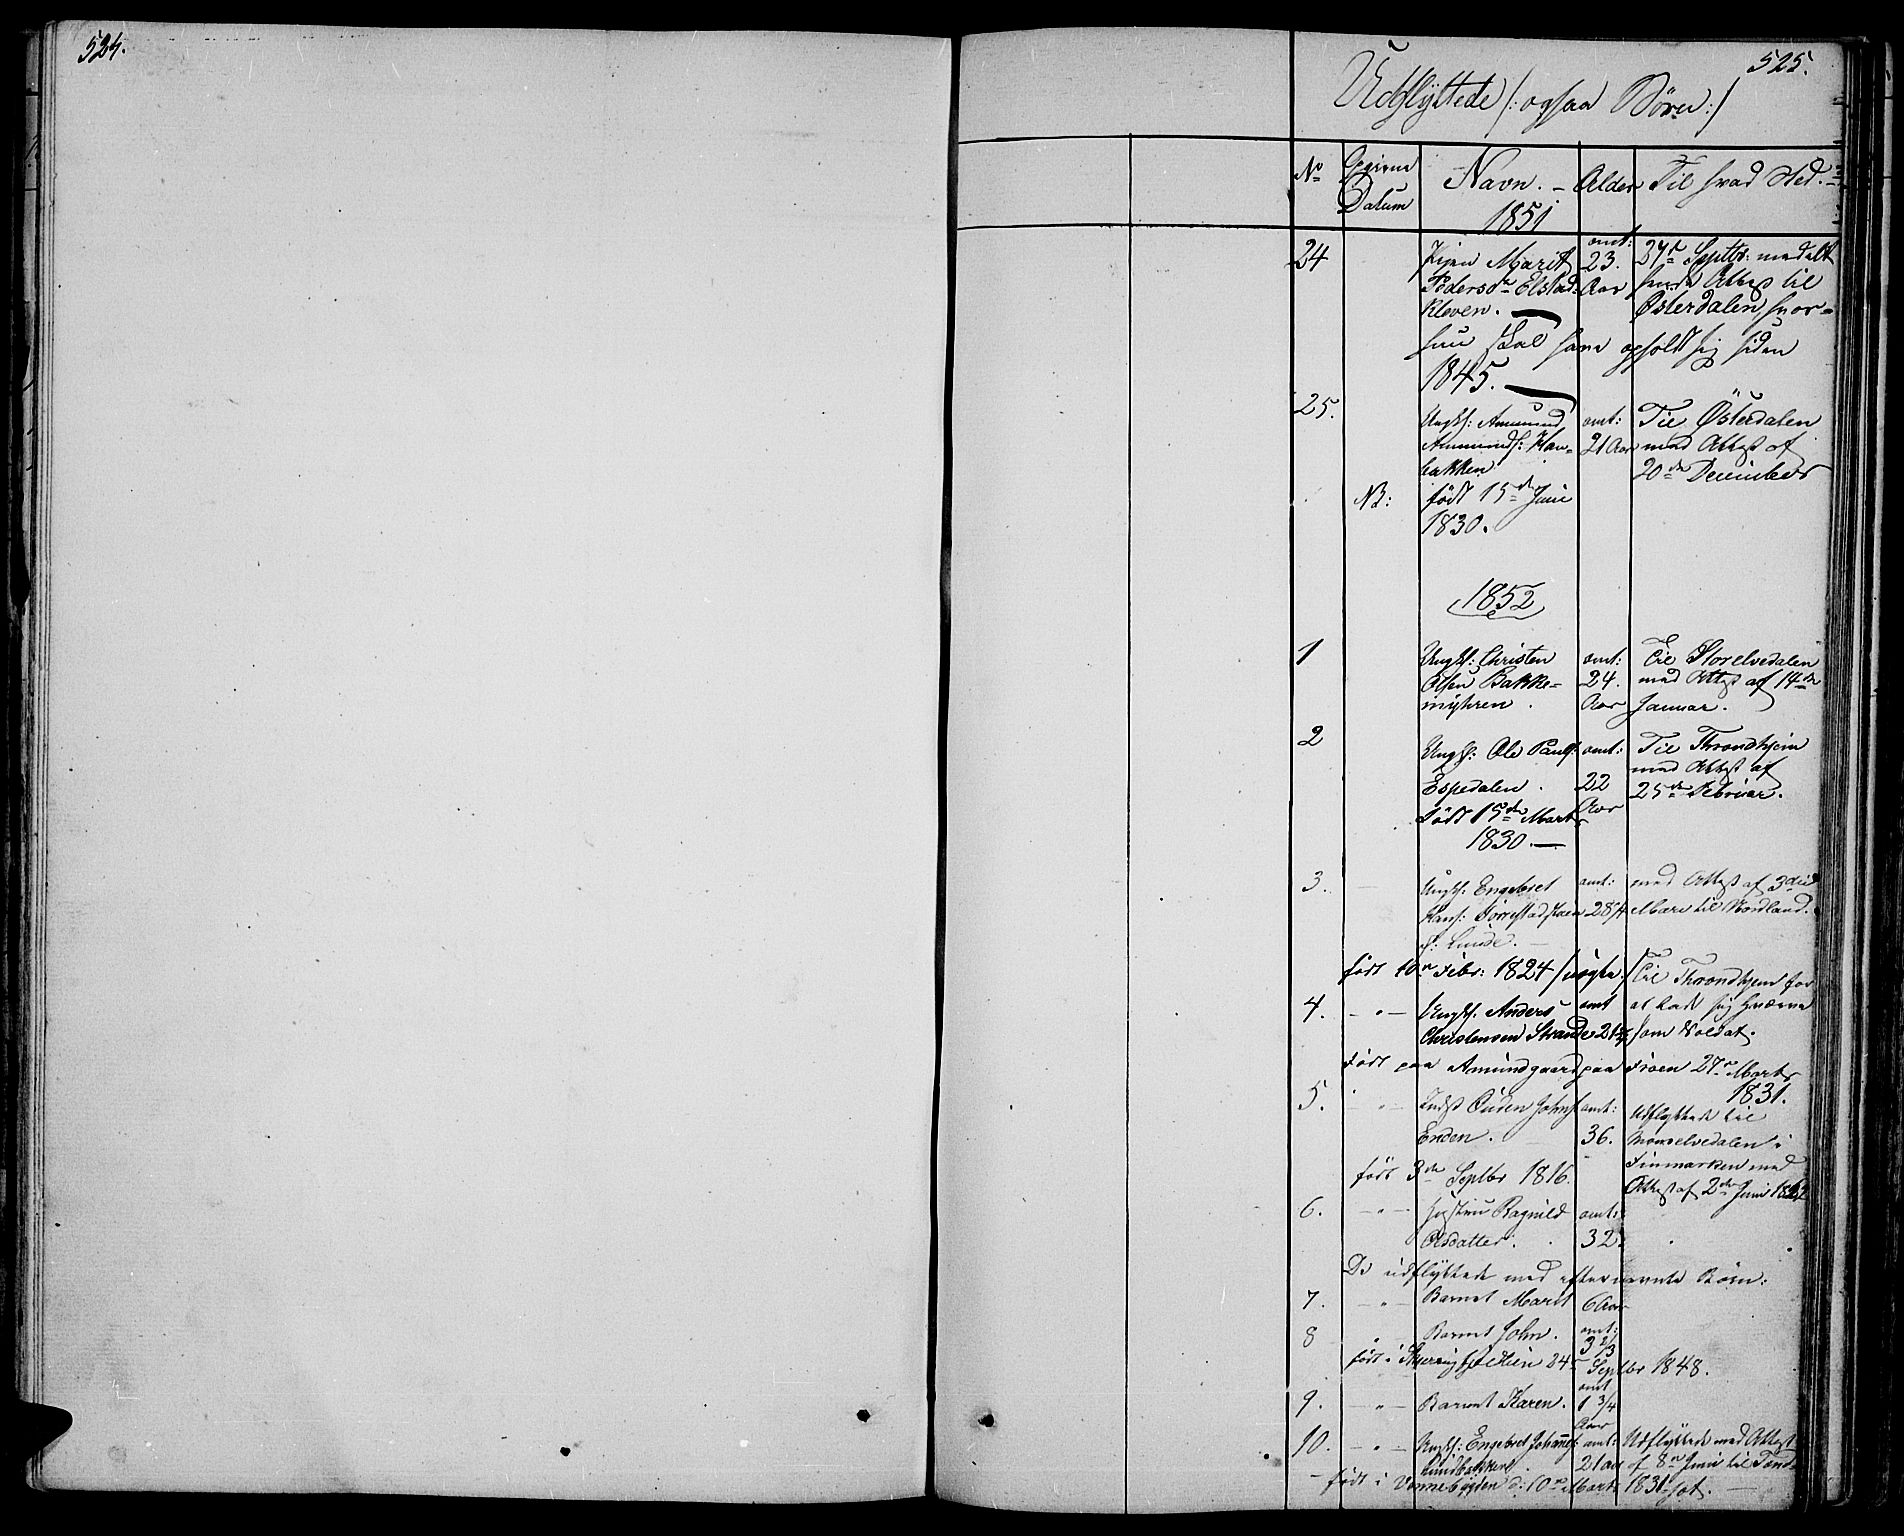 524.
525.
Udflyttede /: ogsaa Børn :/
No Opgivne Datum Navn. Alder Til hvad Sted.
1851
24 Pigen Marit omt: 27de Septbr: meddelt
Pedersdr Elstad- 23. hende Attest til
kleven. Aar Østerdalen, hvor-
hun skal have opholdt sig siden
1845.
25. Ungk: Amund omt: Til Østerdalen
Amunds: Hau- 21 Aar med Attest af
bakken 20de December
NB: født 15de Juni
1830.
1852
1 Ungk: Christen omt: Til Storelvedalen
Olsen Bakke- 24. med Attest af 14de
myhren. Aar Januar.
2 Ungk: Ole Pauls: omt: Til Throndhjem
Espedalen. 22 med Attest af
Født 15de Marts Aar 25de Februar.
1830.
3. Ungk: Engebret omt: med Attest af 3die
Hans: 28 Marts til Nordland.
Lunde.
født 10de Febr: 1824 /uægte/ Til Throndhjem for
4. Ungk. Anders omt at lade sig hverve
Christensen Strande 21 som Soldat.
Født paa Amundgaard paa Froen 27de Marts
1831.
5. Indst Ouden Johns: omt: Udflyttede til
Enden. 36. Maaselvedalen i
født 3de Septbr 1816. Finmarken med
Attest af 2den Juni 1852
6. Hustru Ragnild omt:
Olsdatter. 32.
De udflyttede med efternævnte Børn:
7. Barnet Marit 6 Aar
8 Barnet John. omt: 3 2/3
født i 24de Septbr 1848.
9. Barnet Karen. omt 1 3/4 Aar
10. Ungk: Engebret Johannes: omt: Udflyttede med Attest
Lundbakken. 21 aar af 8de Juni til Tønd-
født i Vennebygden d: 10de Marts 1831 sæt.